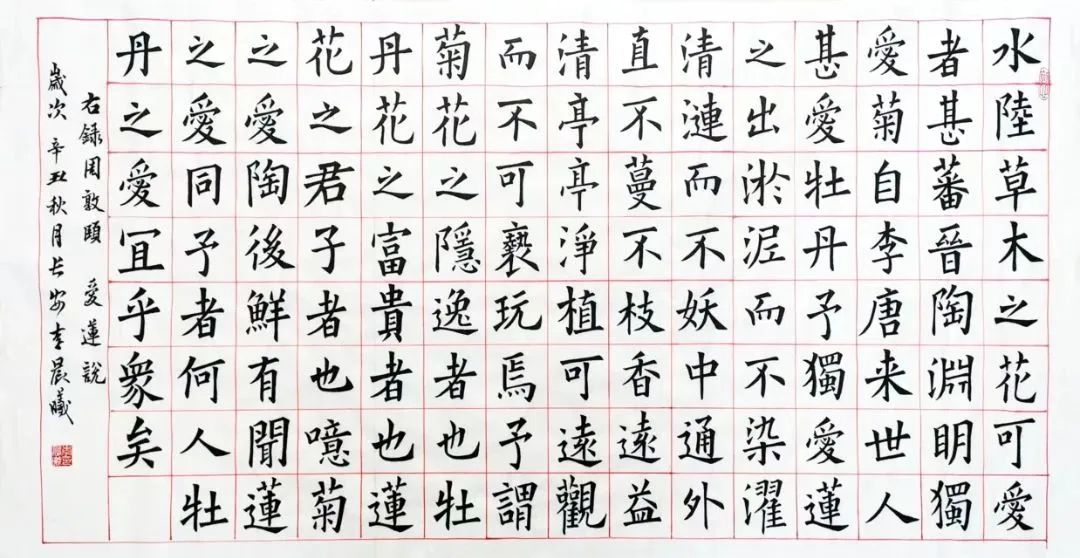 水陸草木之花可愛
者甚蕃晉陶淵明獨
愛菊自李唐来世人
甚愛牡丹予獨愛蓮
之出淤泥而不染濯
清漣而不妖中通外
直不蔓不枝香遠益
清亭亭淨植可遠觀
而不可褻玩焉予謂
菊花之隱逸者也牡
丹花之富貴者也蓮
花之君子者也噫菊
之愛陶後鮮有聞蓮
之愛同予者何人牡
丹之愛冝乎衆矣
右錄周敦頤 愛蓮說
歲次辛丑秋月长安李晨曦